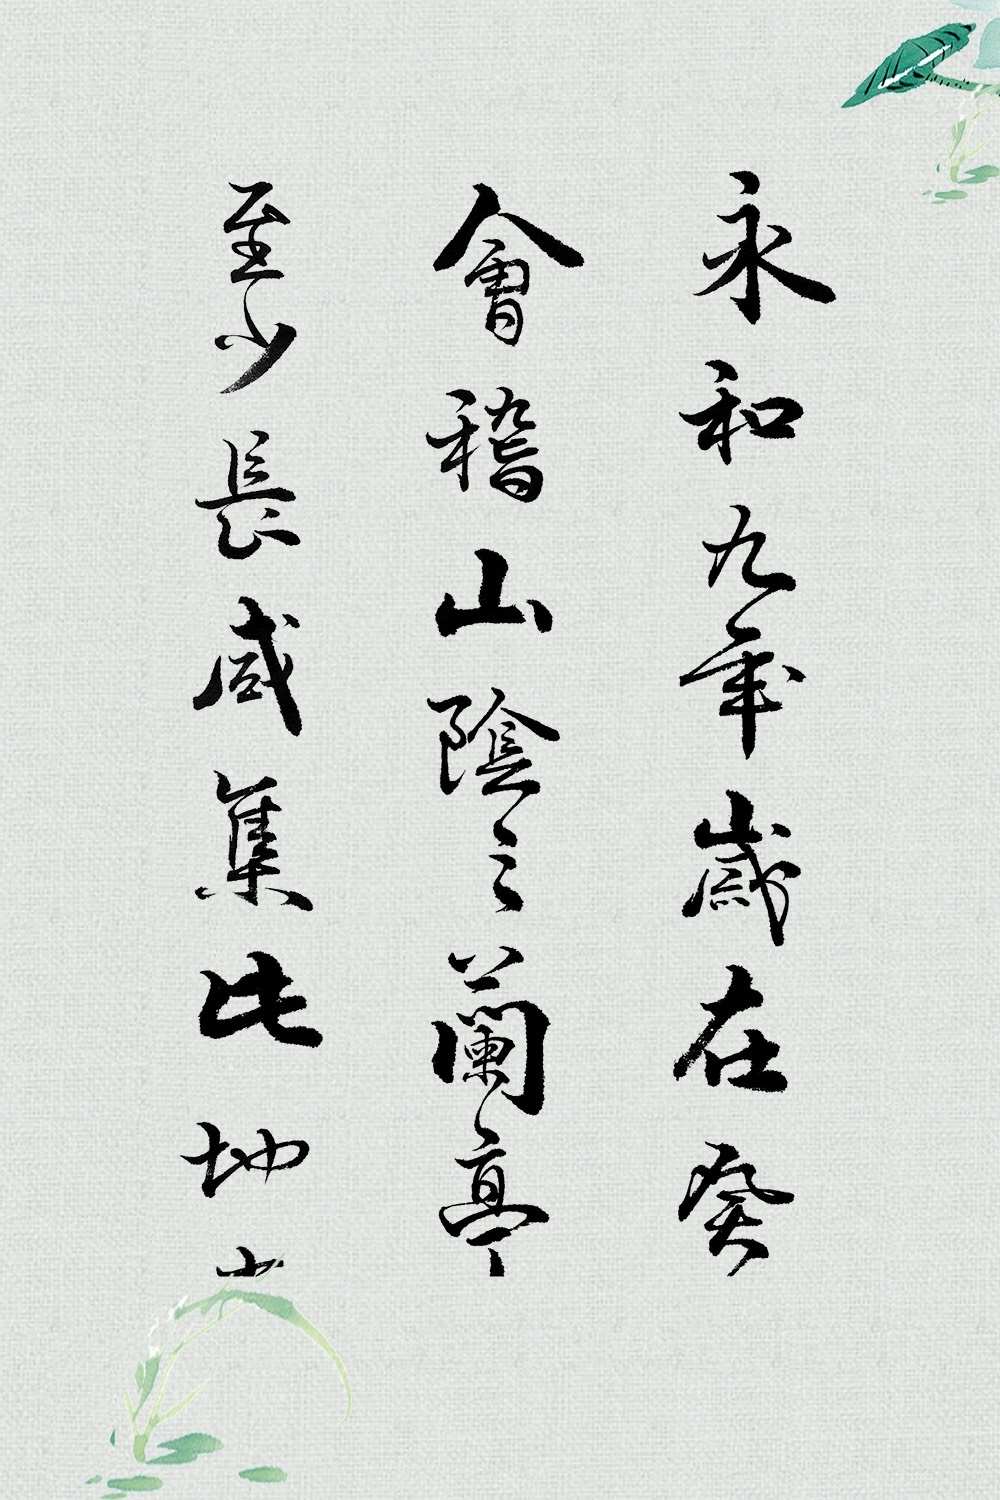 永和九年歲在癸
會稽山陰之蘭亭
至少長咸集此地